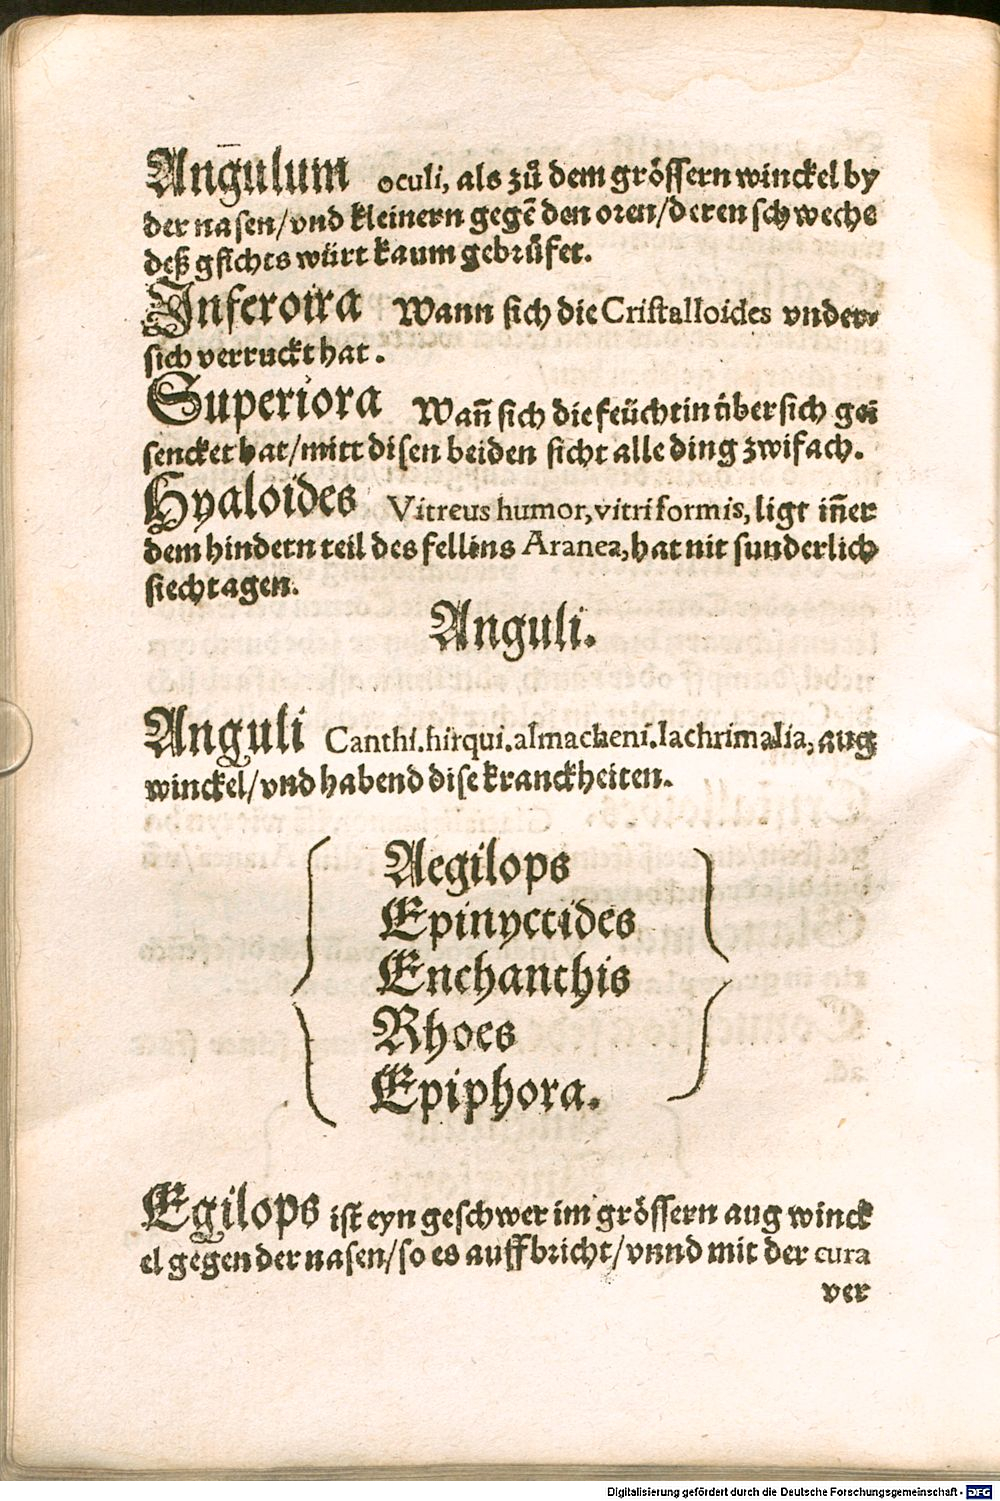 Angulum oculi, als zů dem grössern winckel by
der nasen/vnd kleinern gegē den oren/deren schweche
deß gsichts würt kaum gebrüfet.
Inferoira Wann sich die Cristalloides vnder-
sich verruckt hat.
Superiora Wañ sich die feüchtin über sich gei
sencket hat/mitt disen beiden sicht alle ding zwifach.
Hyaloides Vitreus humor, vitriformis, ligt iñer
dem hindern teil des fellins Aranea, hat nit sunderlich
siechtagen.
Anguli.
Anguli Canthi. hirqui. almacheni. lachrimalia, aug
winckel/vnd habend dise kranckheiten.
Aegilops
Epinyctides
Enchanthis
Rhoes
Epiphora.
Egilops ist eyn geschwer im grössern aug winck
el gegen der nasen/so es auffbricht/vnnd mit der cura
ver
Digitalisierung gefördert durch die Deutsche Forschungsgemeinschaft - DFG